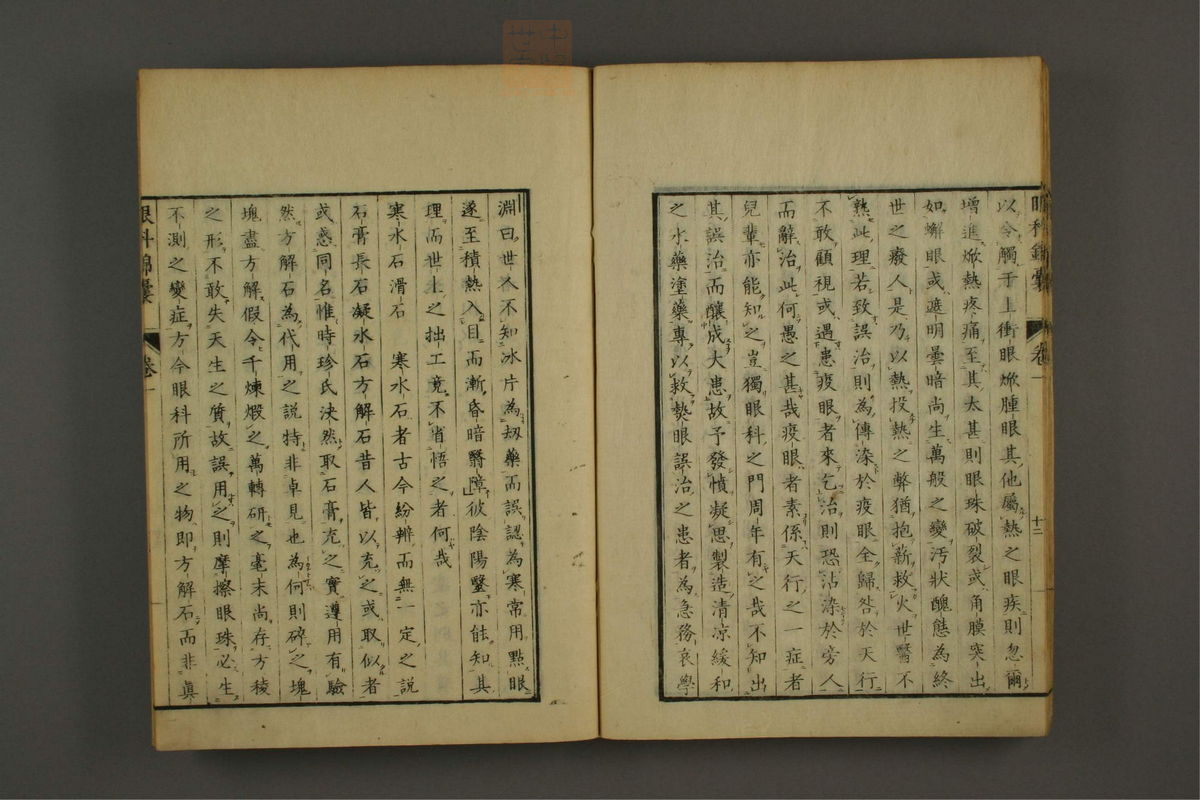 眼科錦囊 卷一 十二
以令觸于上衝眼焮腫眼其他屬熱之眼疾則忽爾
增進焮熱疼痛至其太甚則眼珠破裂或角膜突出
如蟹眼或遮明曇暗尚生萬般之變汚狀醜態為終
世之廢人是乃以熱投熱之弊猶抱薪救火世醫不
熟此理若致誤治則為傳染於疫眼全歸咎於天行
不敢顧視或遇患疫眼者來乞治則恐沾染於旁人
而辭治此何愚之甚哉疫眼者素係天行之一症者
兒輩亦能知之豈獨眼科之門周年有之哉不知出
其誤治而釀成大患故予發憤凝思製造清凉緩和
之水藥塗藥專以救㷠眼誤治之患者為急務哀學
淵曰世人不知冰片為㓤藥而誤認為寒常用點眼
遂至積熱入目而漸昏暗翳障彼陰陽醫亦能知其
理而世上之拙工竟不省悟之者何哉
寒水石滑石 寒水石者古今紛辨而無一定之説
石膏長石凝水石方解石昔人皆以充之或取似者
或惑同名惟時珍氏決然取石膏充之實遵用有驗
然方解石為代用之説特非卓見也為何則碎之塊
塊盡方解假令千煉煅之萬轉研之毫末尚存方稜
之形不敢失天生之質故誤用之則摩擦眼珠必生
不測之變症方今眼科所用之物即方解石而非眞
眼科錦囊 卷一